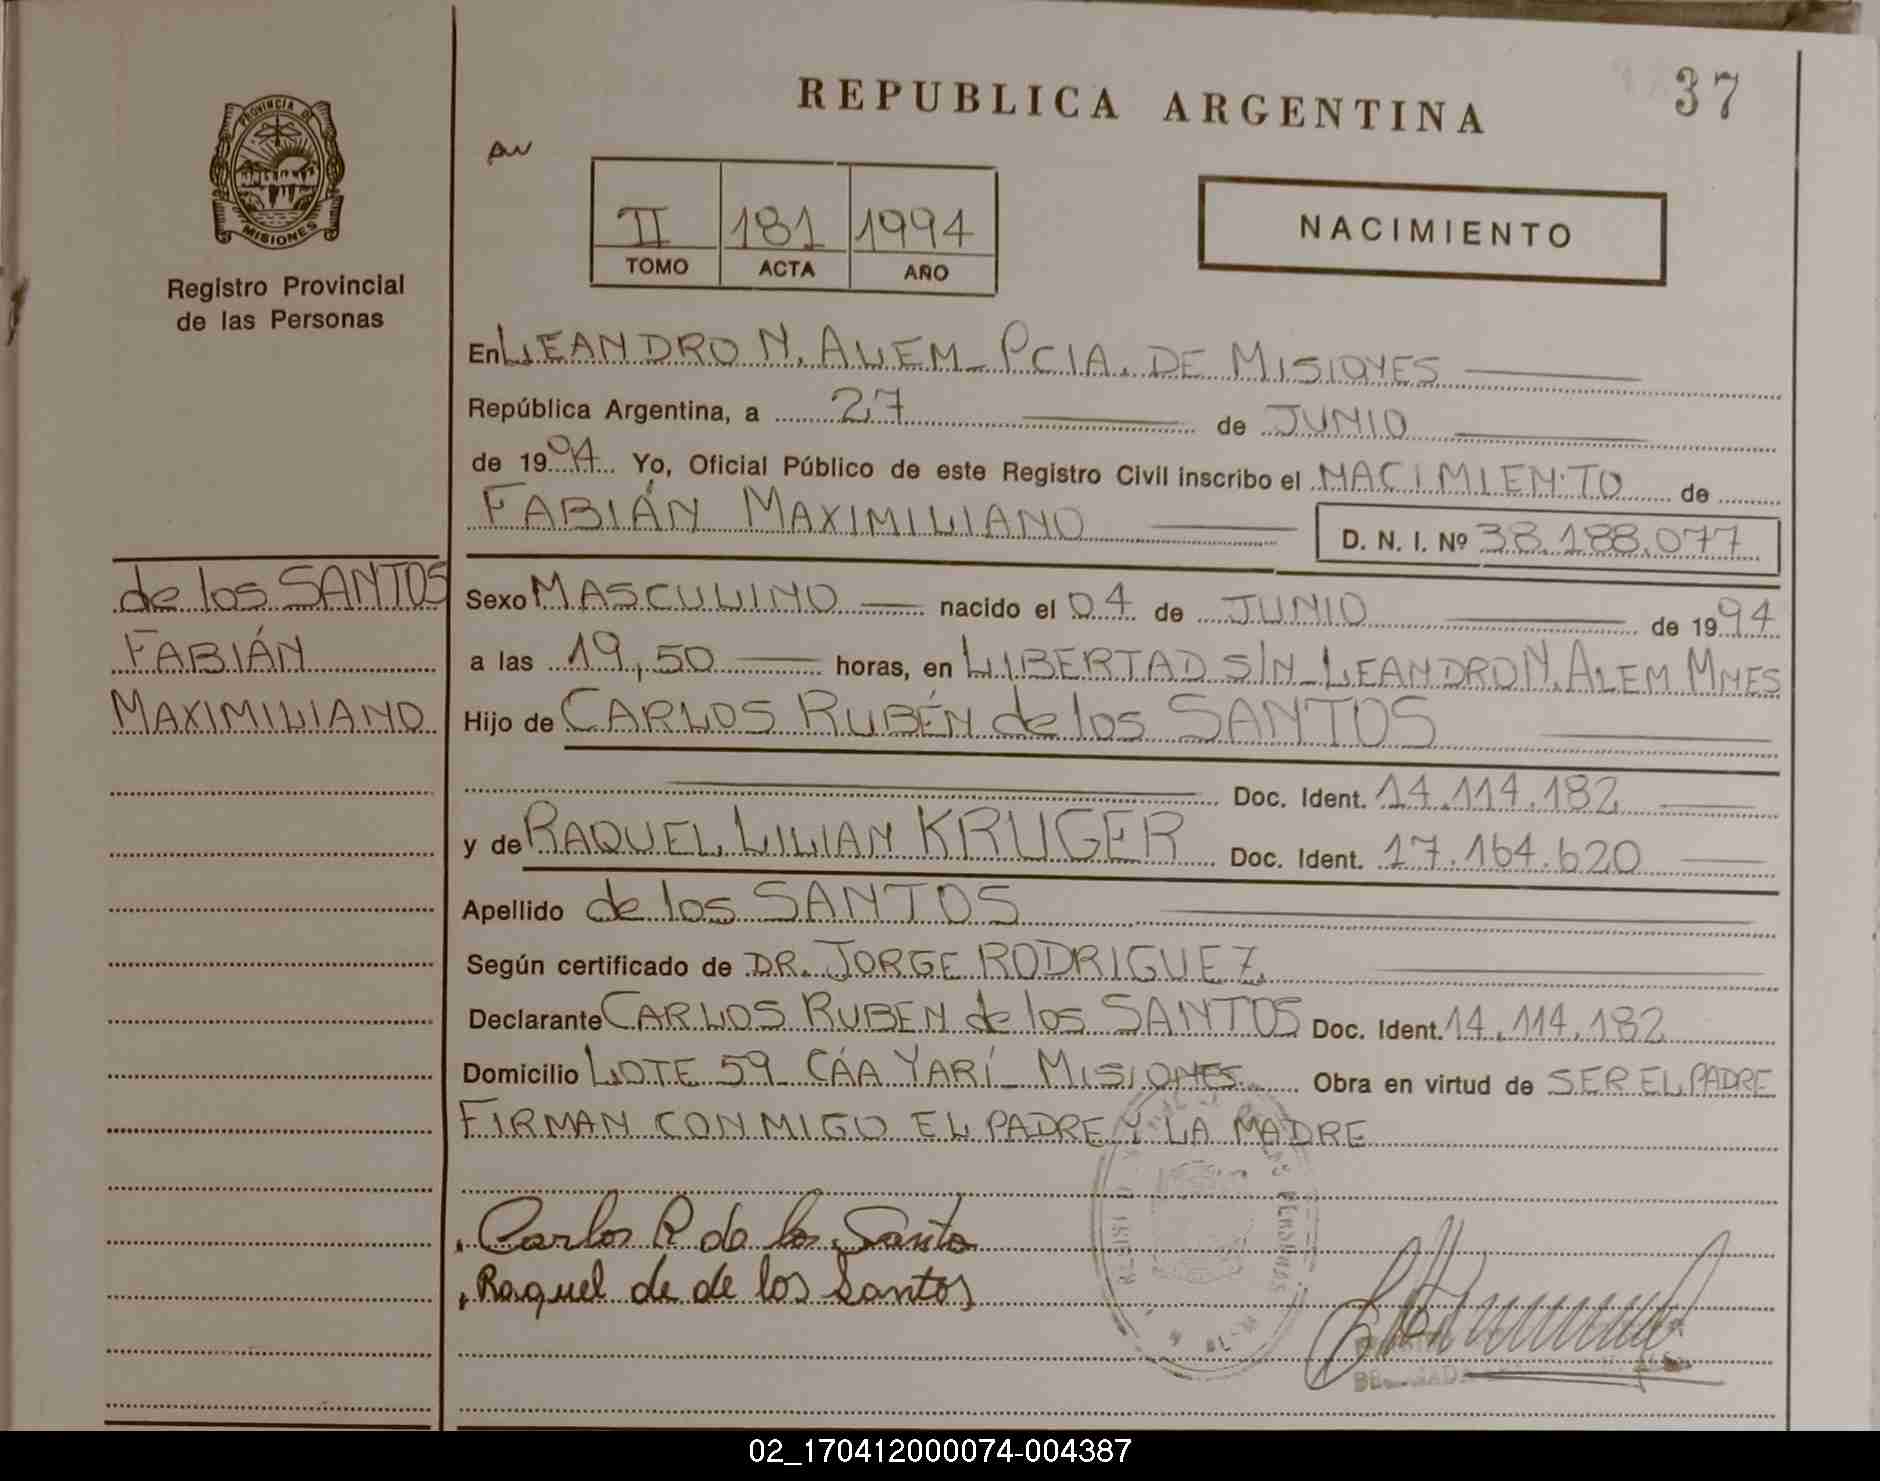 REPUBLICA ARGENTINA
37
PROVINCIA DE
MISIONES
Registro Provincial
de las Personas
II 181 1994
TOMO ACTA AÑO
NACIMIENTO
En LEANDRO N. ALEM - PCIA. DE MISIONES
República Argentina, a 27 de JUNIO
de 1994 Yo, Oficial Público de este Registro Civil inscribo el NACIMIENTO de
FABIÁN MAXIMILIANO D. N. I. Nº 38.188.077
de los SANTOS
FABIÁN
MAXIMILIANO
Sexo MASCULINO nacido el 04 de JUNIO de 1994
a las 19,50 horas, en LIBERTAD S/N - LEANDRO N. ALEM MNES
Hijo de CARLOS RUBÉN de los SANTOS
Doc. Ident. 14.114.182
y de RAQUEL LILIAN KRUGER Doc. Ident. 17.164.620
Apellido de los SANTOS
Según certificado de DR. JORGE RODRIGUEZ
Declarante CARLOS RUBEN de los SANTOS Doc. Ident. 14.114.182
Domicilio LOTE 59 - CÁA YARÍ - MISIONES Obra en virtud de SER EL PADRE
FIRMAN CONMIGO EL PADRE Y LA MADRE
Carlos R de los Santos
Raquel de de los Santos
02_170412000074-004387